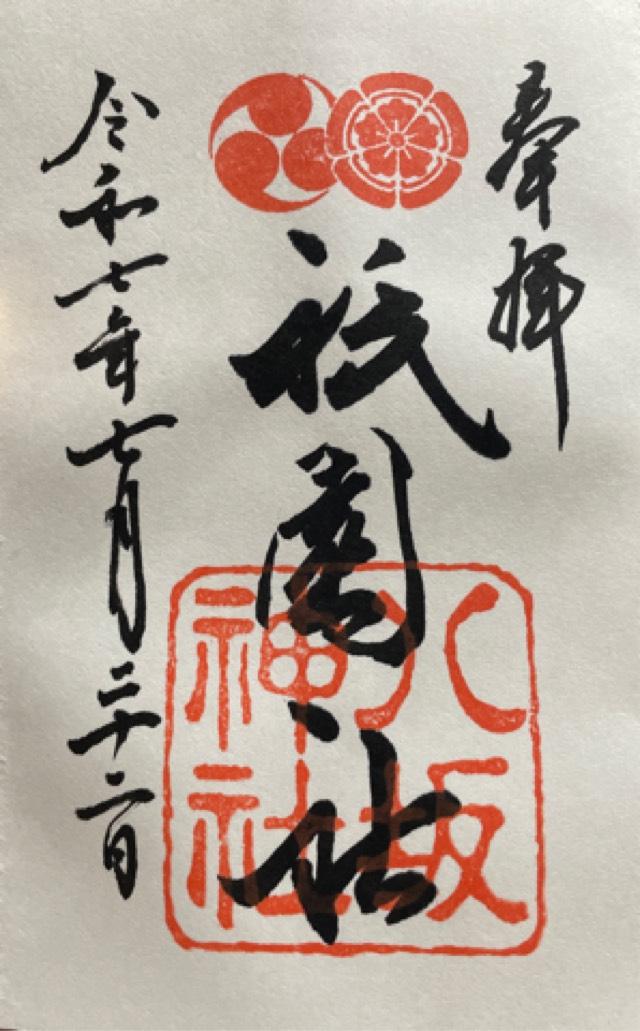 奉拝
祇園社
八坂
神社
令和七年七月二十二日